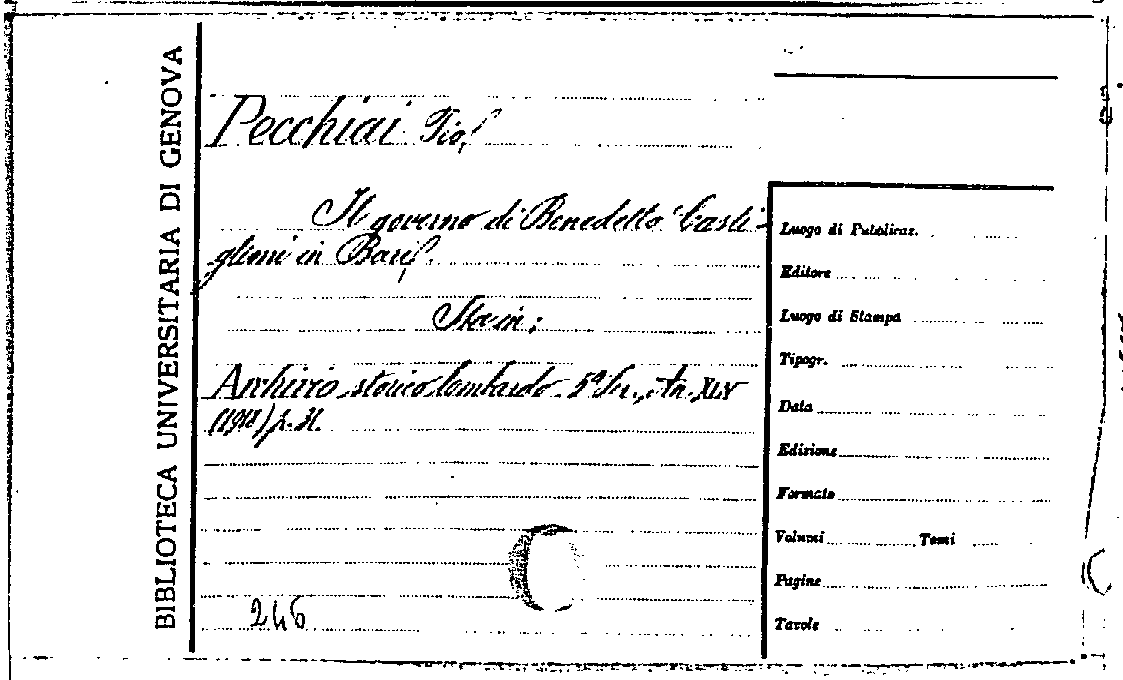 BIBLIOTECA UNIVERSITARIA DI GENOVA
Pecchiai Pio,
Il governo di Benedetto Casti-
glioni in Bari,
Sta in:
Archivio storico lombardo. 5ª Ser., An. XLV
(1918) p. 31.
246
Luogo di Pubblicaz.
Editore
Luogo di Stampa
Tipogr.
Data
Edizione
Formato
Volumi Tomi
Pagine
Tavole